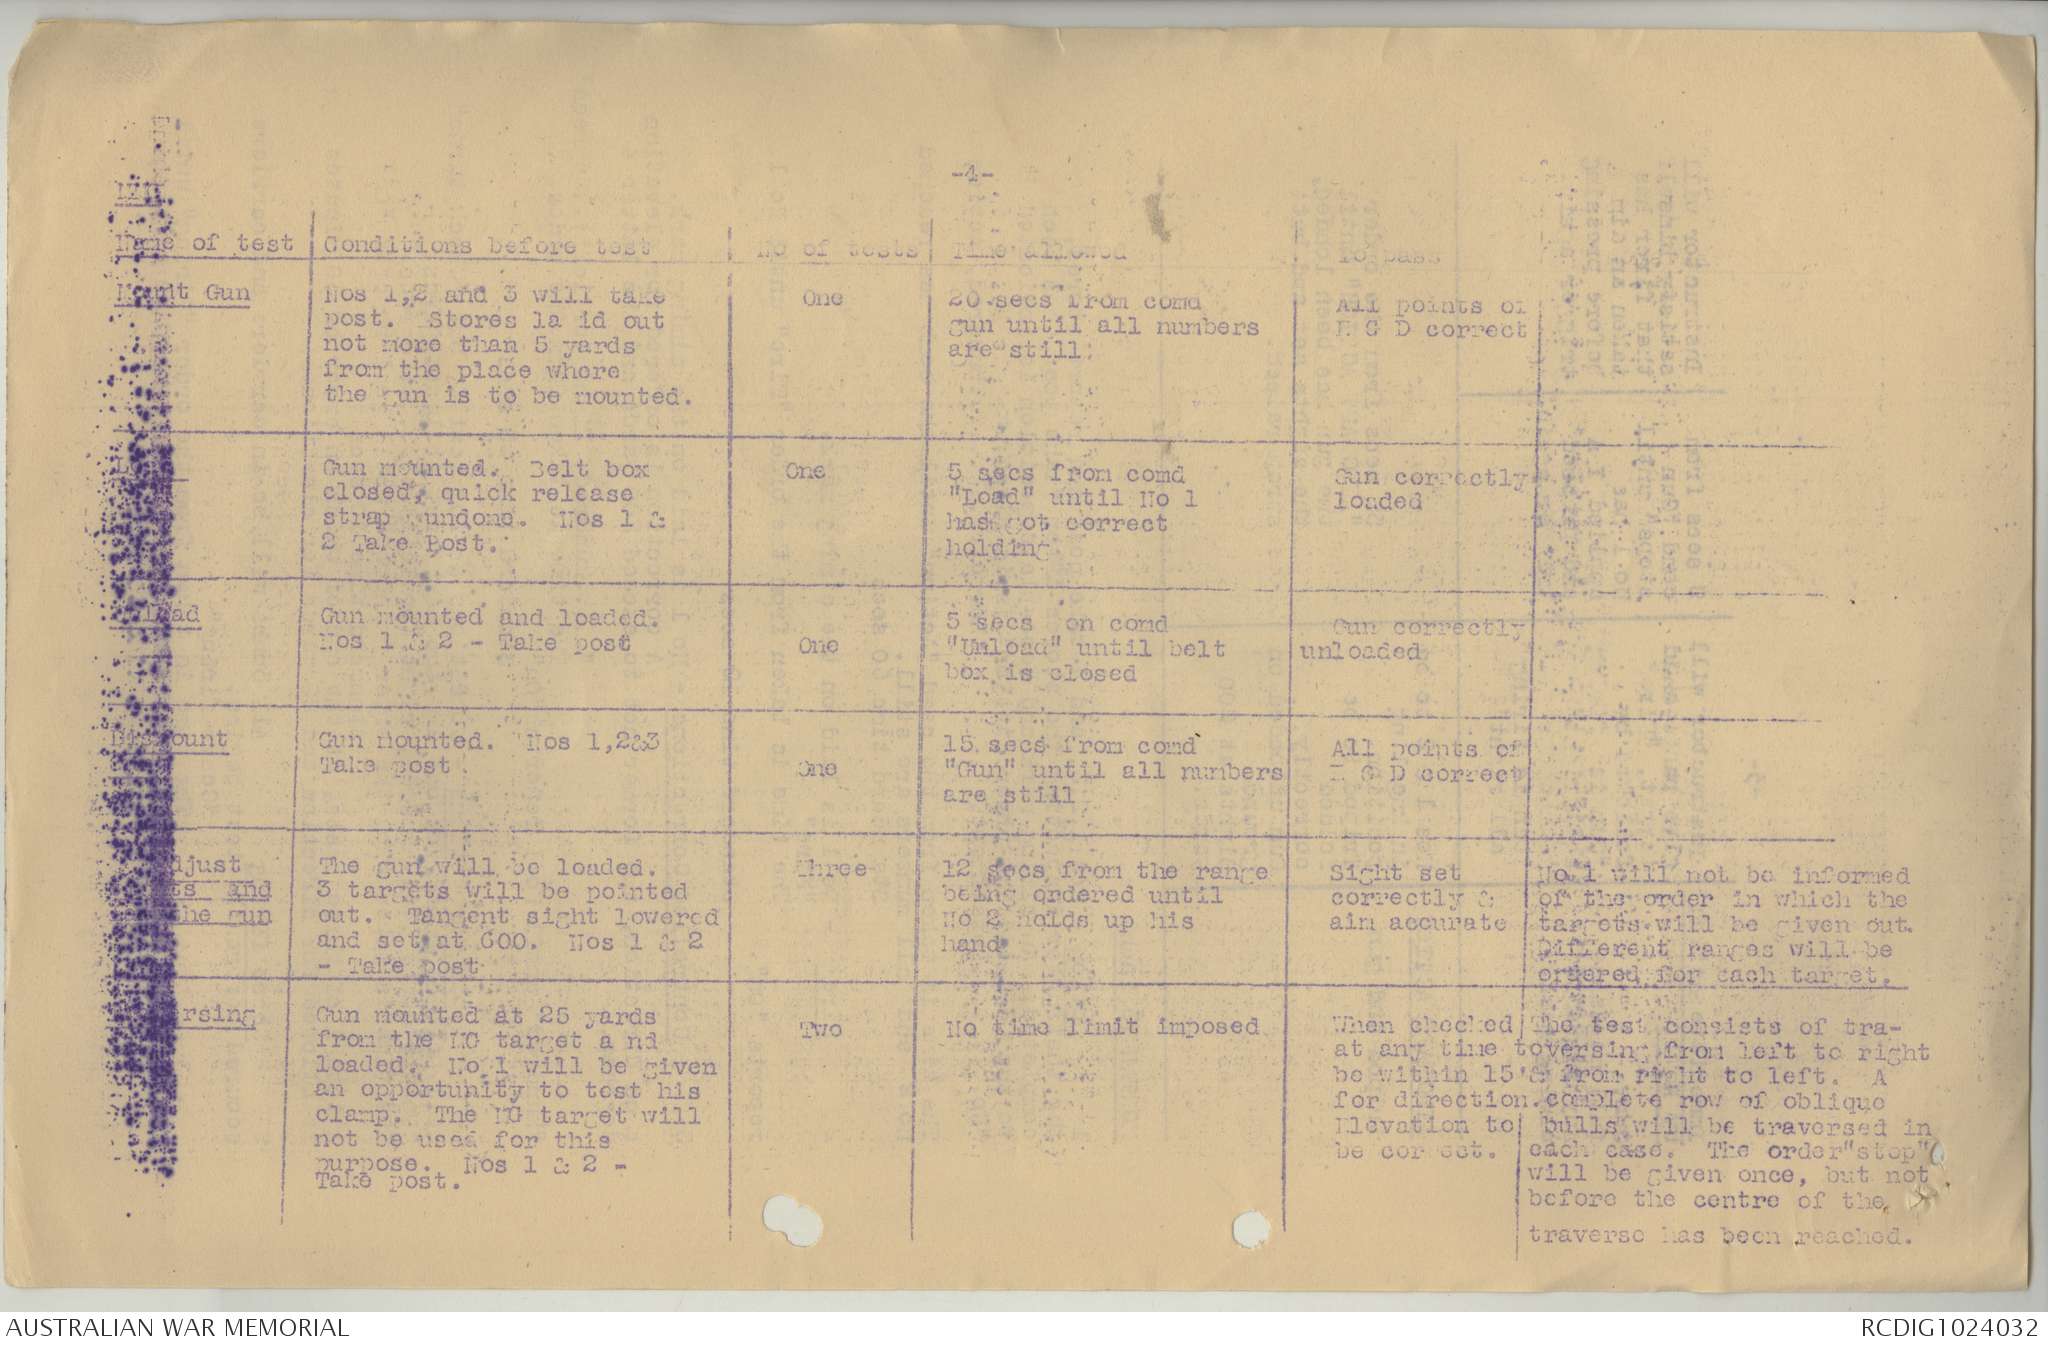 -4-
Name of test
Conditions before test
No of tests
Time allowed
To pass
Mount Gun
Nos 1,2 and 3 will take
post. Stores la id out
not more than 5 yards
from the place where
the gun is to be mounted.
One
20 secs from comd
gun until all numbers
are still.
All points of
E G D correct
Gun mounted. Belt box
closed, quick release
strap undone. Nos 1 &
2 Take Post.
One
5 secs from comd
"Load" until No 1
has got correct
holding
Gun correctly
loaded
Gun mounted and loaded.
Nos 1 & 2 - Take post
One
5 secs on comd
"Unload" until belt
box is closed
Gun correctly
unloaded
Dismount
Gun mounted. Nos 1,2&3
Take post
One
15 secs from comd
"Gun" until all numbers
are still
All points of
E G D correct
and
the gun
The gun will be loaded.
3 targets will be pointed
out. Tangent sight lowered
and set at 600. Nos 1 & 2
- Take post
Three
12 secs from the range
being ordered until
No 2 holds up his
hand
Sight set
correctly &
aim accurate
No 1 will not be informed
of the order in which the
targets will be given out.
Different ranges will be
ordered for each target.
Gun mounted at 25 yards
from the MG target a nd
loaded. No 1 will be given
an opportunity to test his
clamp. The MG target will
not be used for this
purpose. Nos 1 & 2 -
Take post.
Two
No time limit imposed
When checked
at any time to
be within 15'
for direction.
Elevation to
be correct.
The test consists of tra-
versing from left to right
& from right to left. A
complete row of oblique
bulls will be traversed in
each case. The order "stop"
will be given once, but not
before the centre of the
traverse has been reached.
AUSTRALIAN WAR MEMORIAL
RCDIG1024032